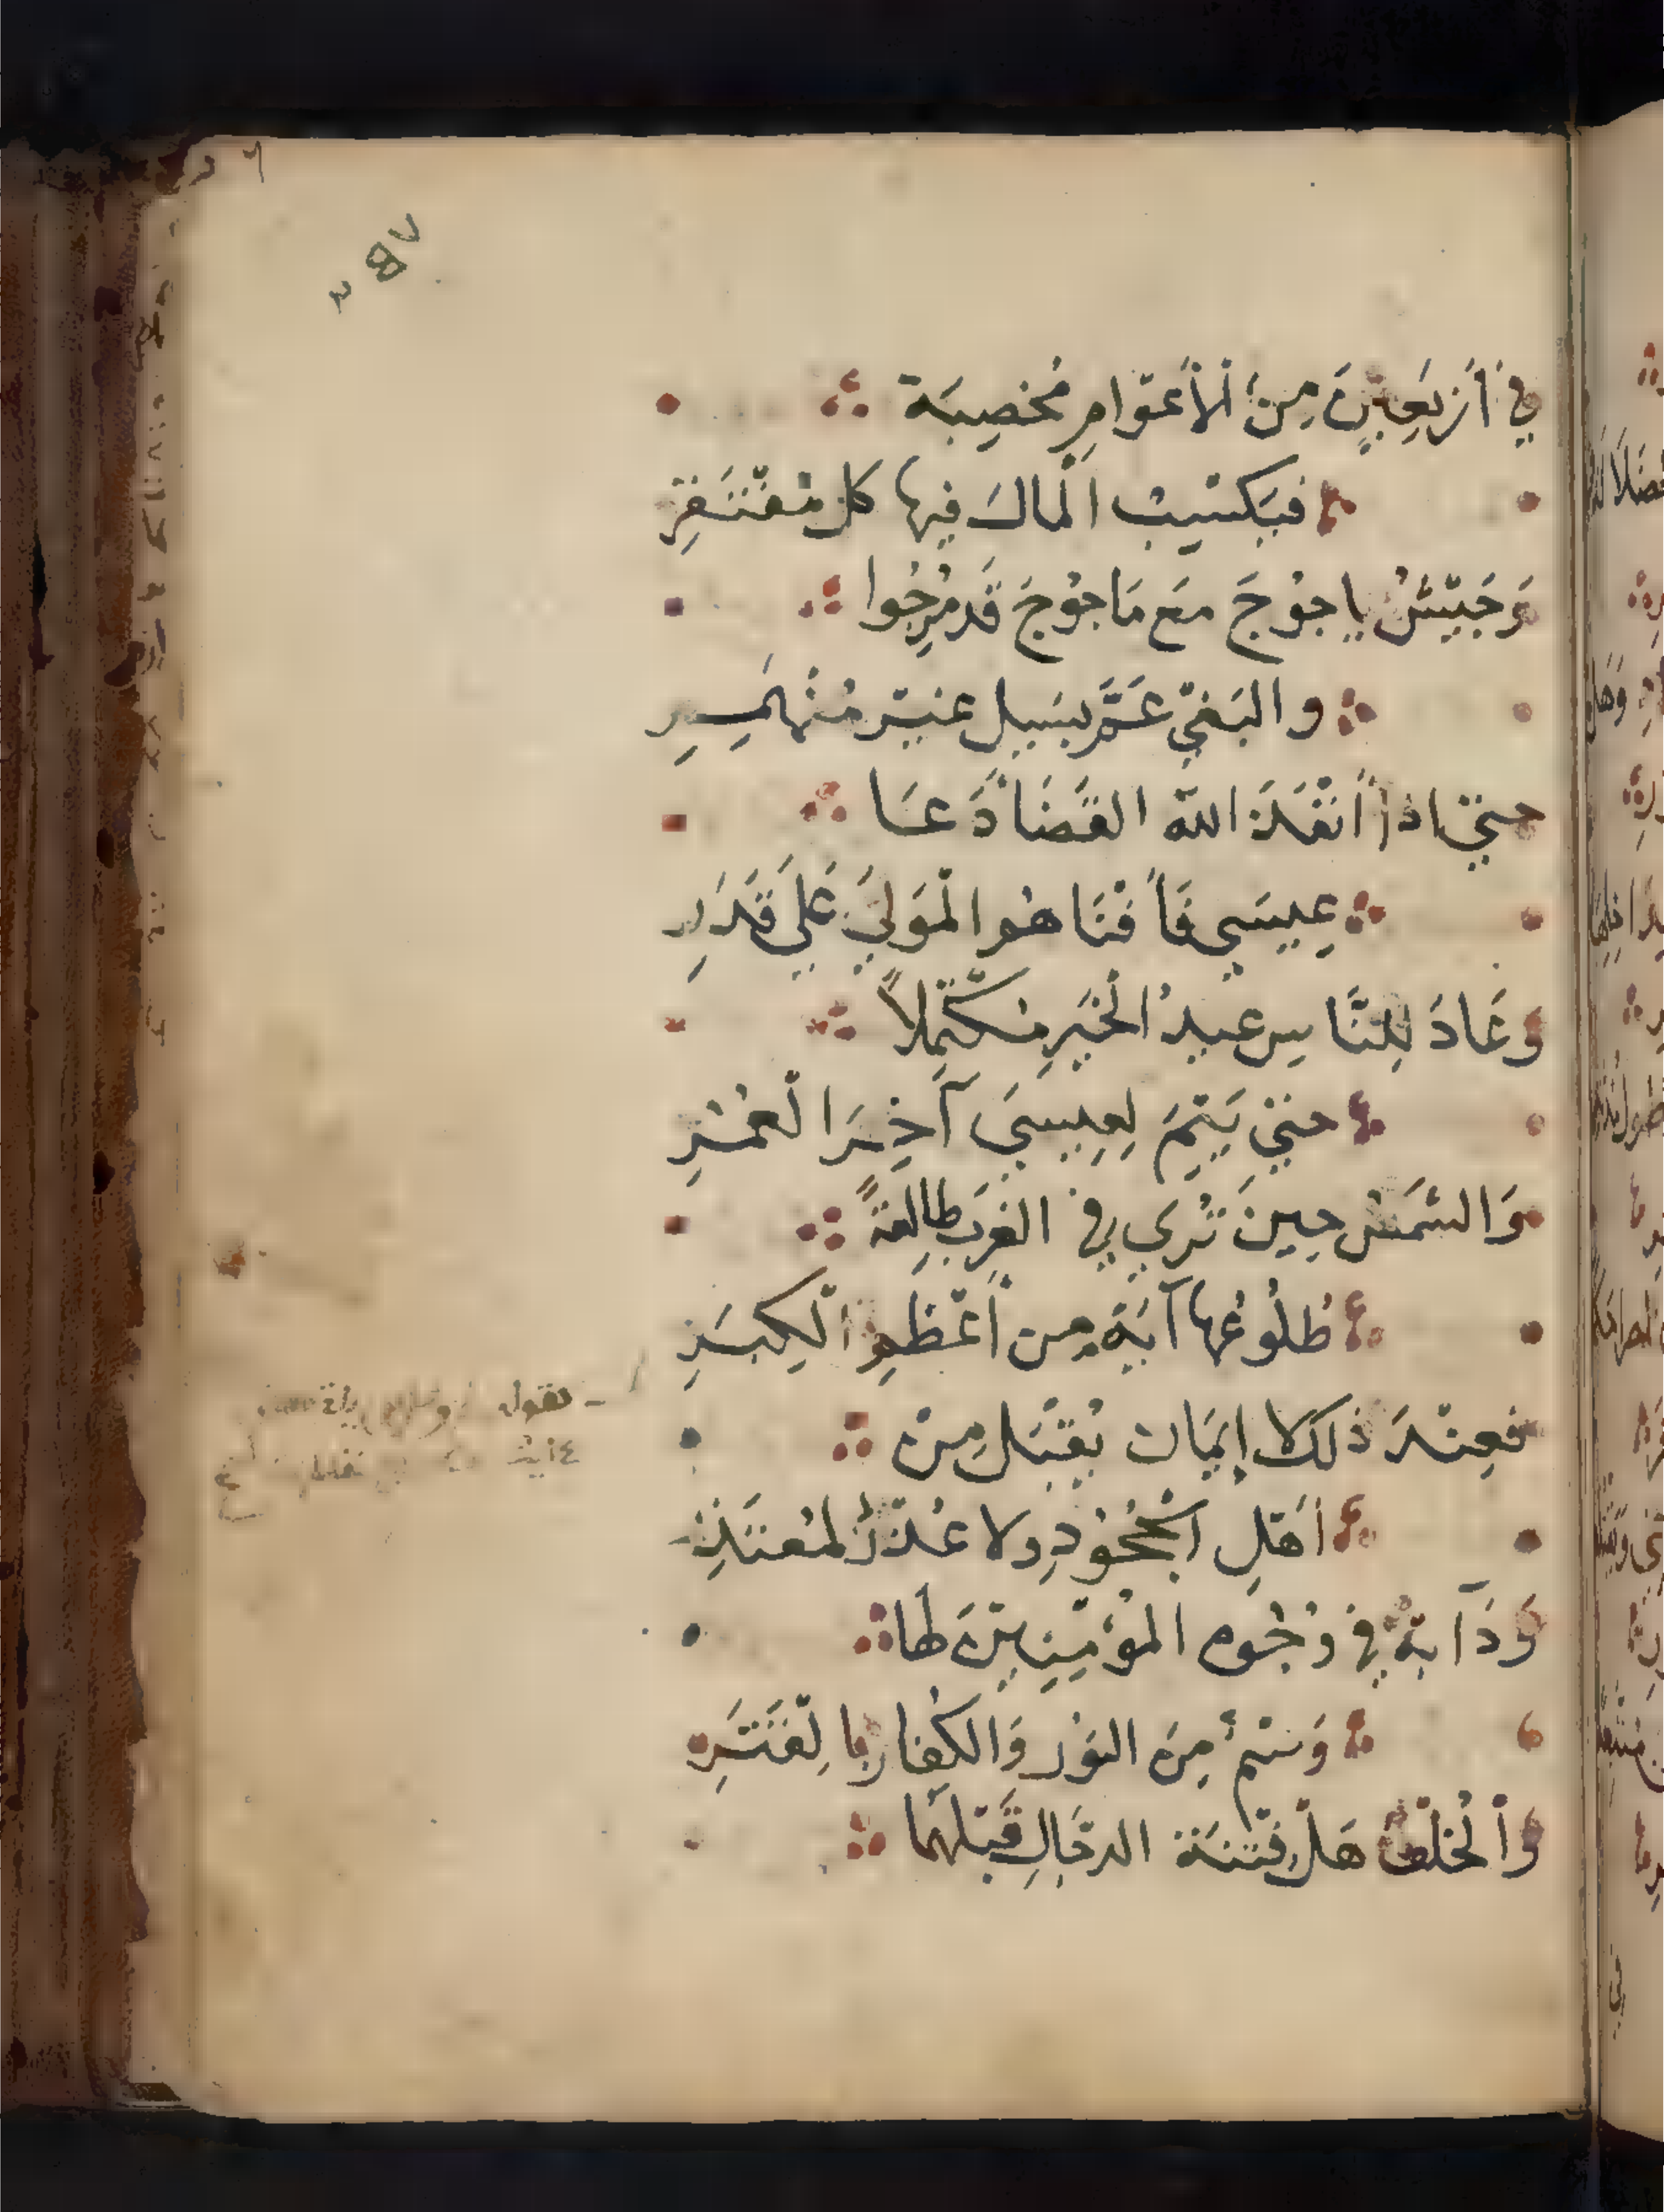 في أَرْبَعِينَ مِنَ ٱلْأَعْوَامِ مُخْصِبَة
فيَكْسِبُ الْمالَ فيها كل مُفْتَقِرِ
وَجَيْشُ ياجُوْجَ مَع مَاجُوْجَ قَد مُرِجُوا
والبَغْيُ عَمَّ بِسَيلٍ غَيْرِ مُنْهَمِرِ
حتي اذا أَنْفَذَ اللهُ القَضَا دَعَا
عِيسَي فَأَفْنَاهُم الْمَولَيَ عَلَي قَدَرِ
وَعَادَ لِلنَّاسِ عيدُ الْخَيرِ مُكْتَمِلاً
حتي يَتِمَ لِعِيسيَ آخِرَ الْعُمُرِ
وَالشَمسُ حِينَ تُرَي في الغَربِ طالِعَةً
طُلُوعُها آيَة مِن أَعْظَمِ الْكِبَرِ
فعِنْدَ ذلك لا إِيمَان يُقْبَلُ مِنْ
اهْلِ الْجُحُوْدِ ولا عُذْرٌ لمُعْتَذِرِ
وَدَآبَّة في وُجُوه المؤْمِنِيْنَ لها
وَسْمٌ مِنَ النوْرِ وَالكُفارِ بالْقَتَرِ
وَٱلْخُلْفُ هَلْ فِتْنَة الدجَالِ قَبْلهُمَا